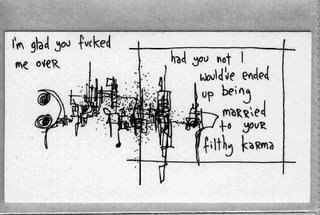 i'm glad you fucked
me over
had you not I
would've ended
up being
married
to your
filthy karma